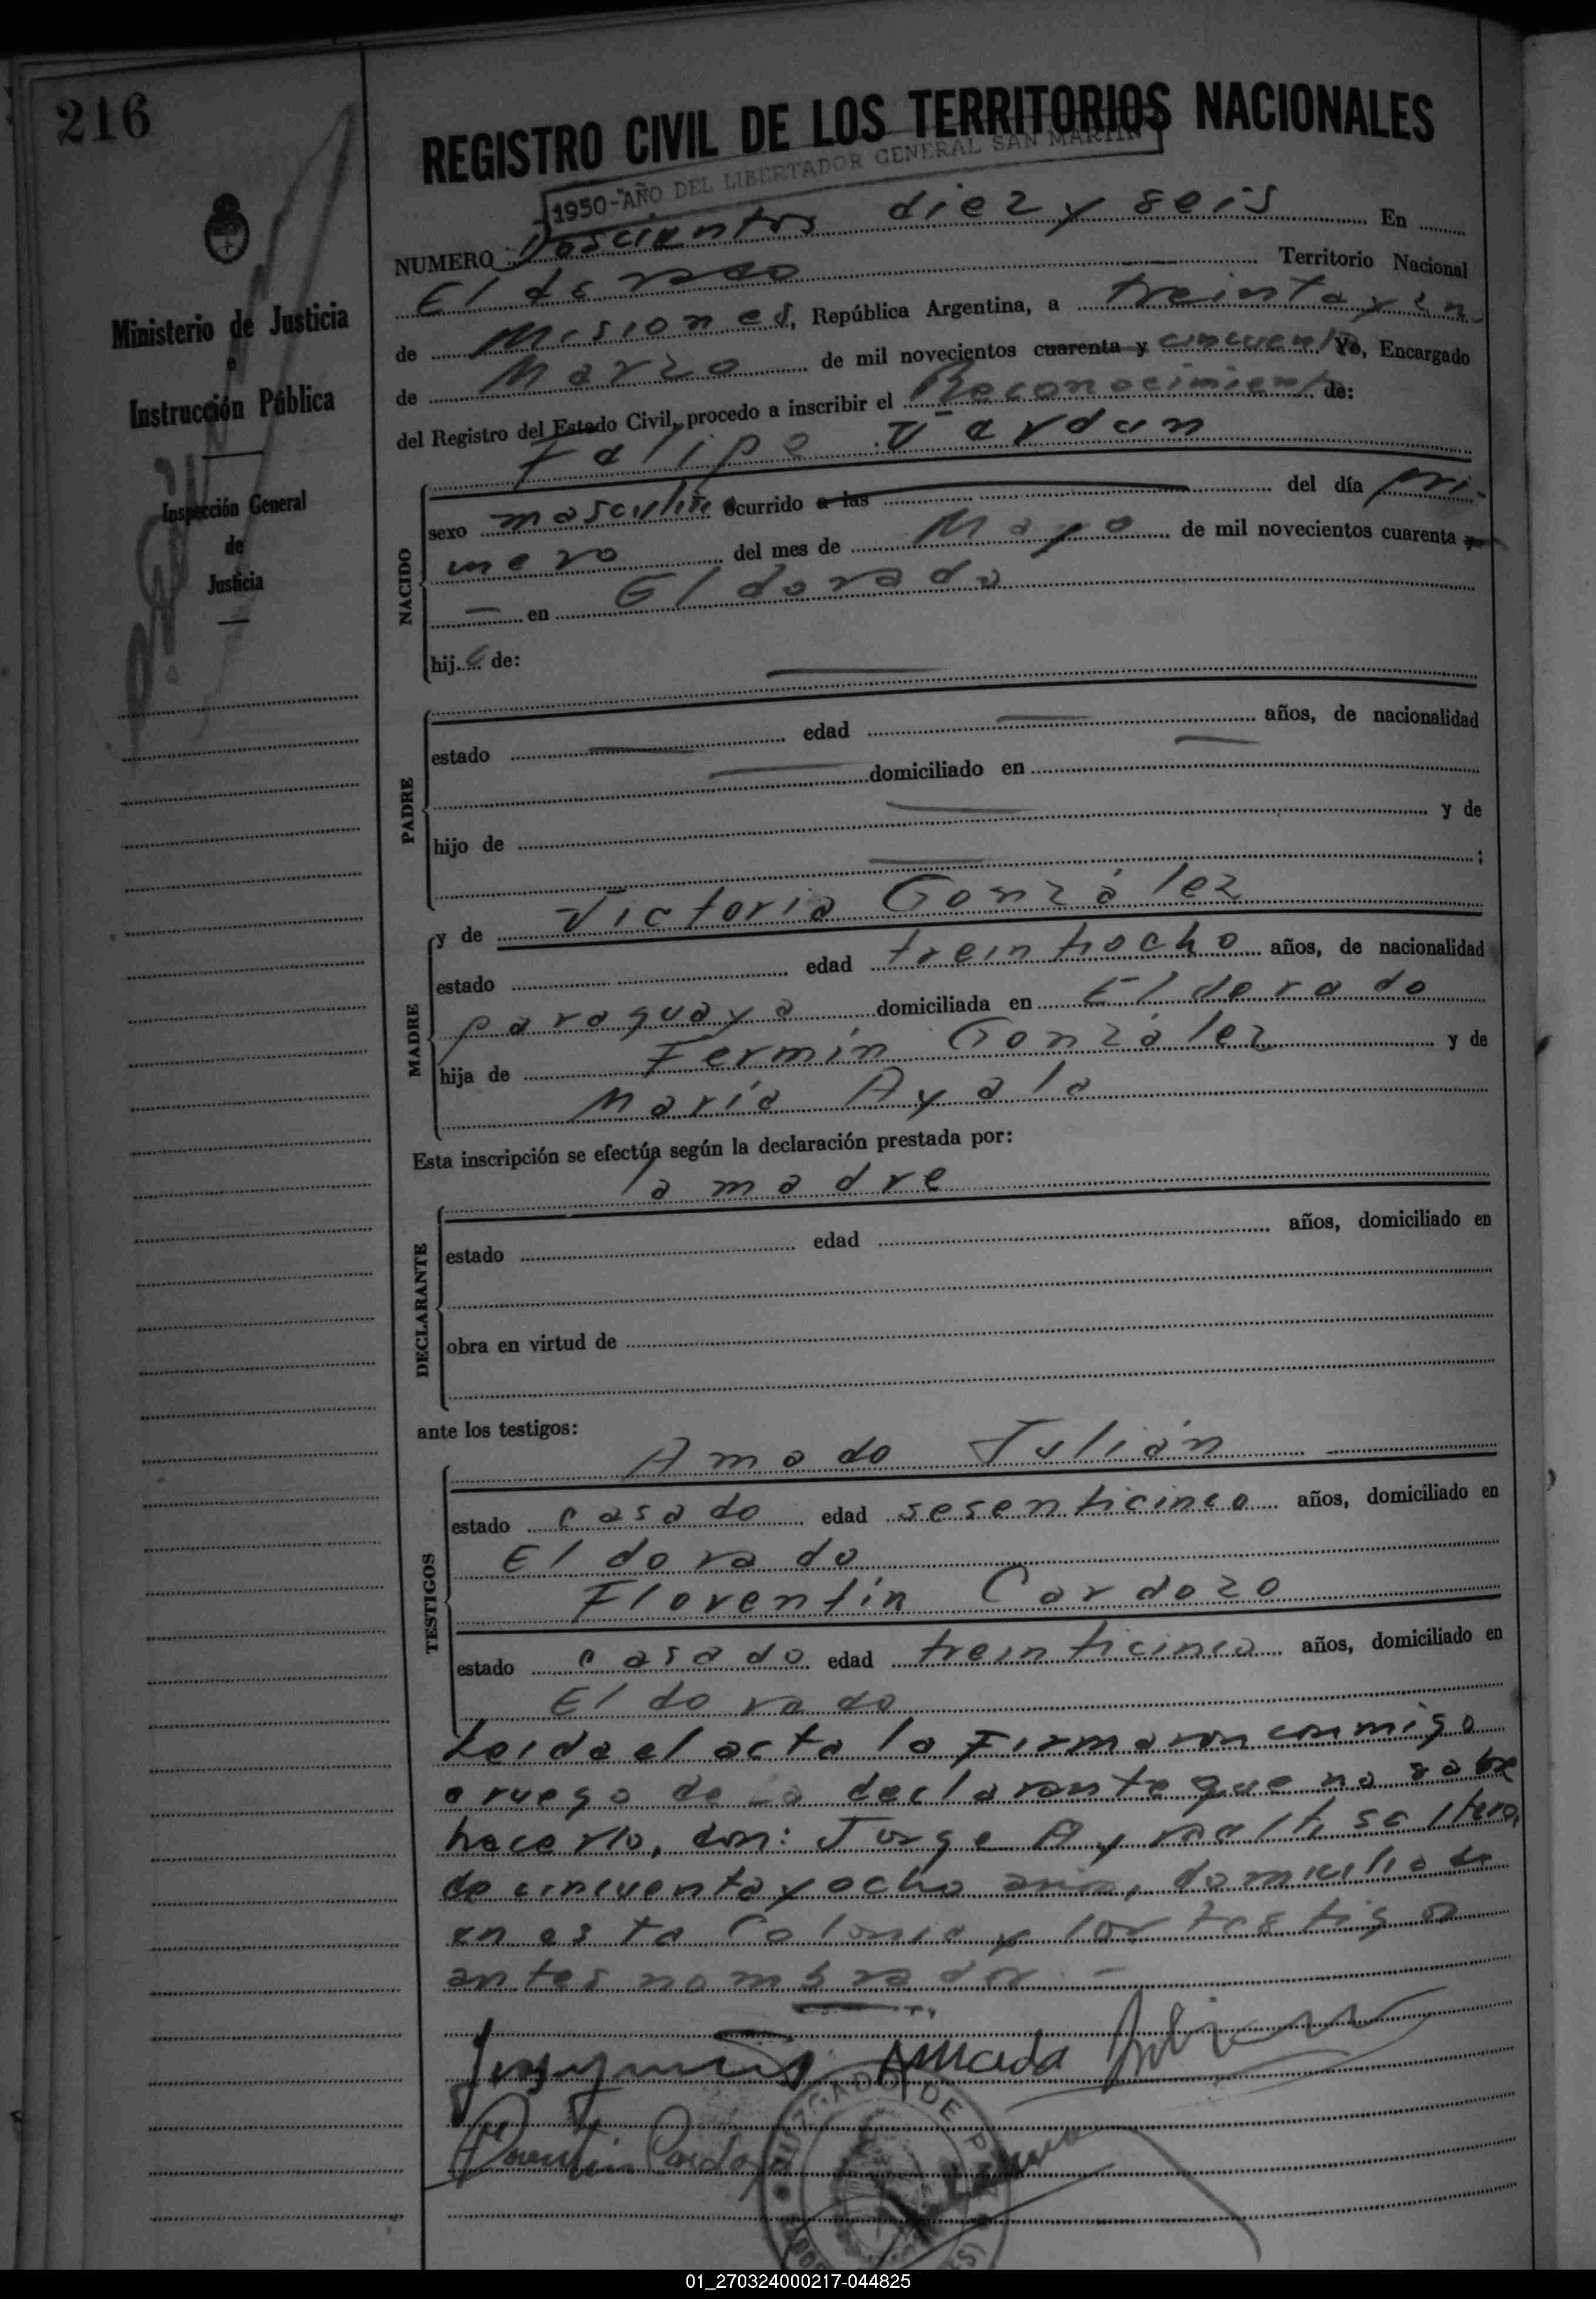 216
REGISTRO CIVIL DE LOS TERRITORIOS NACIONALES
1950-"AÑO DEL LIBERTADOR GENERAL SAN MARTIN"
NUMERO Doscientos diez y seis En
Eldorado Territorio Nacional
de Misiones, República Argentina, a treinta y un
de Marzo de mil novecientos cuarenta y cincuenta Yo, Encargado
del Registro del Estado Civil, procedo a inscribir el Reconocimiento de:
Verdun
Ministerio de Justicia
e
Instrucción Pública
Inspección General
de
Justicia
NACIDO
sexo masculino ocurrido a las del día pri-
mero del mes de Mayo de mil novecientos cuarenta y
— en Eldorado
hij de:
PADRE
estado edad años, de nacionalidad
domiciliado en
hijo de y de
;
MADRE
y de Victoria González
estado edad treintiocho años, de nacionalidad
paraguaya domiciliada en Eldorado
hija de Fermín González y de
María Ayala
Esta inscripción se efectúa según la declaración prestada por:
la madre
DECLARANTE
estado edad años, domiciliado en
obra en virtud de
ante los testigos:
TESTIGOS
Amado Julián
estado casado edad sesenticinco años, domiciliado en
Eldorado
Florentín Cardozo
estado casado edad treinticinco años, domiciliado en
Eldorado
Leida el acta la Firmaron conmigo
a ruego de la declarante que no sabe
hacerlo, don: Jorge soltero,
de cincuenta y ocho años, domiciliado
en esta Colonia y los testigos
antes nombrados.-
Amada
Florentin Cardozo
JUZGADO DE P
01_270324000217-044825